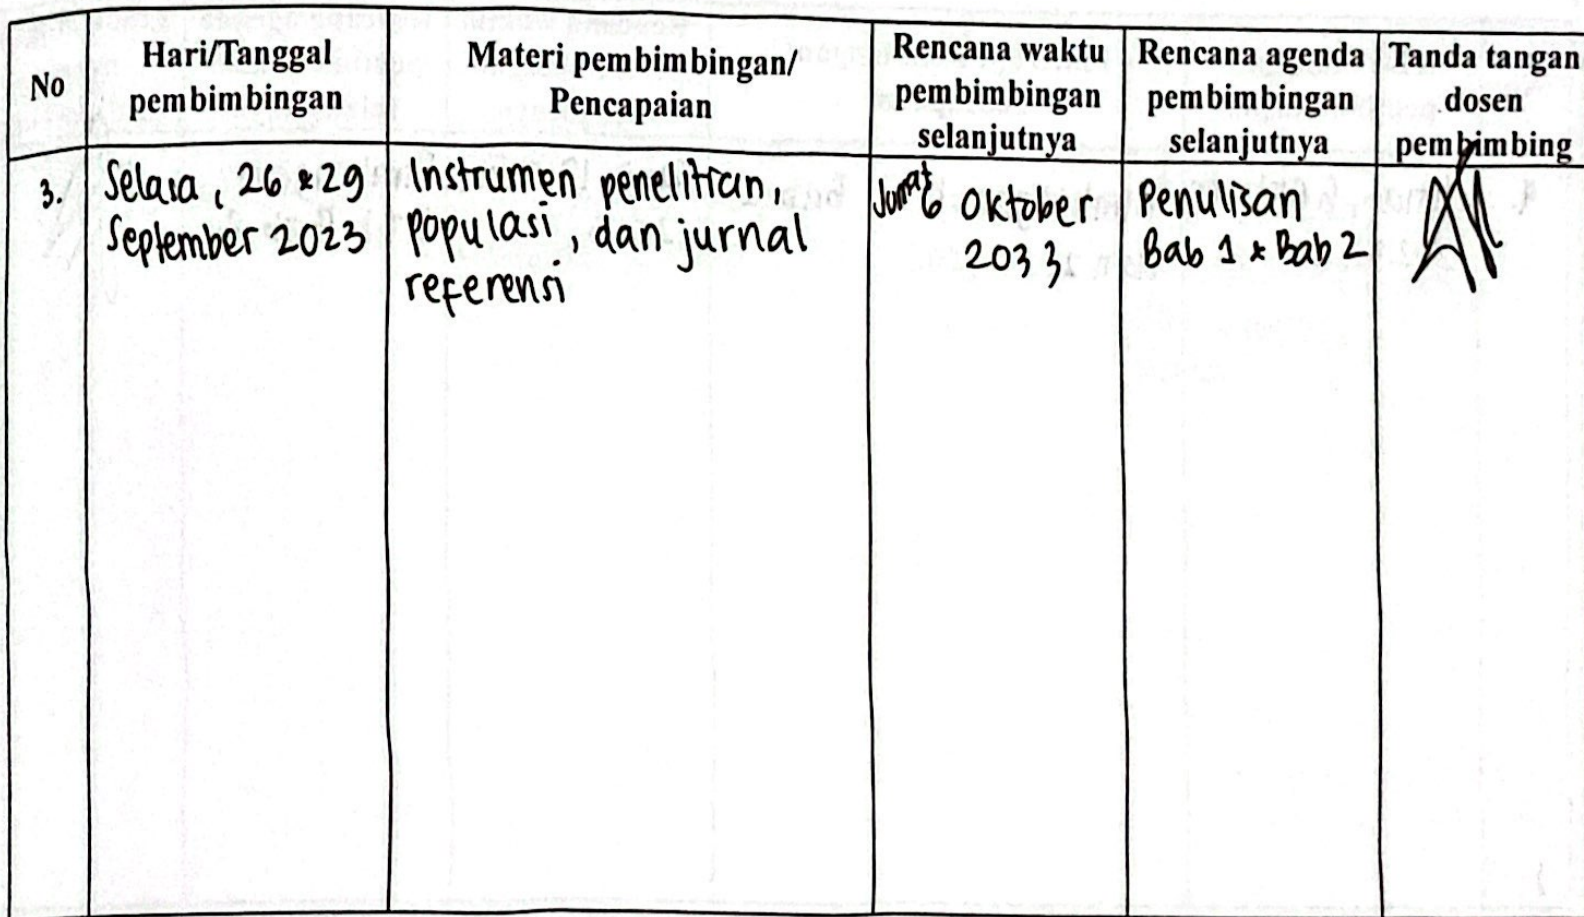 No
Hari/Tanggal
pembimbingan
Materi pembimbingan/
Pencapaian
Rencana waktu
pembimbingan
selanjutnya
Rencana agenda
pembimbingan
selanjutnya
Tanda tangan
dosen
pembimbing
3.
Selasa, 26 & 29
September 2023
Instrumen penelitian,
populasi, dan jurnal
referensi
Jumat 6 Oktober
2033
Penulisan
Bab 1 & Bab 2